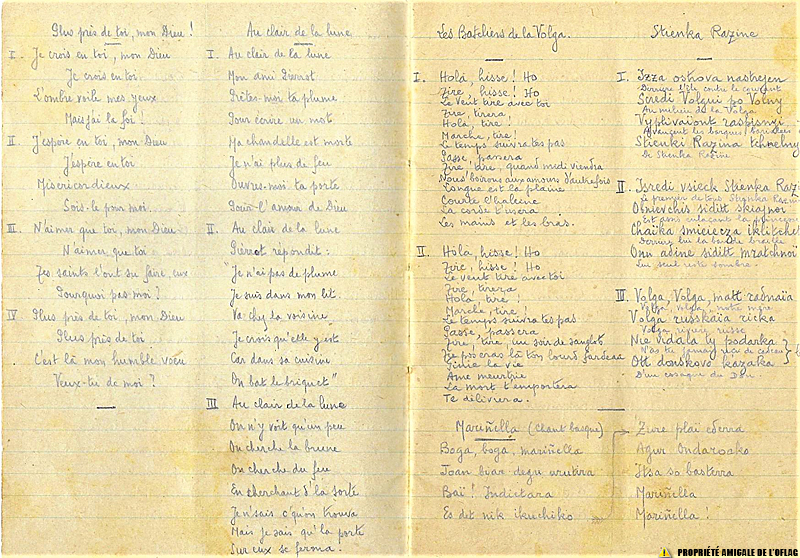 Plus près de toi, mon Dieu !
I. Je crois en toi, mon Dieu
Je crois en toi.
L'ombre voile mes yeux
Mais j'ai la foi !
II J'espère en toi, mon Dieu
J'espère en toi
Miséricordieux
Sois-le pour moi.
III N'aimer que toi, mon Dieu
N'aimer que toi
Tes saints l'ont su faire, eux
Pourquoi pas moi ?
IV Plus près de toi, mon Dieu
Plus près de toi.
C'est là mon humble voeu
Veux-tu de moi ?
Au clair de la lune
I. Au clair de la lune
Mon ami Pierrot
Prêtes-moi ta plume
Pour écrire un mot
Ma chandelle est morte
Je n'ai plus de feu
Ouvres-moi ta porte
Pour l'amour de Dieu
II. Au clair de la lune
Pierrot répondit :
"Je n'ai pas de plume
Je suis dans mon lit.
Va chez la voisine
Je crois qu'elle y est
Car dans sa cuisine
On bat le briquet"
III Au clair de la lune
On n'y voit qu'un peu
On cherche la brune
On cherche du feu
En cherchant d'la sorte
Je n'sais c'qu'on trouva
Mais je sais qu'la porte
Sur eux se ferma.
Les Bateliers de la Volga.
I. Holà, hisse ! Ho
Tire, hisse ! Ho
Le vent tire avec toi
Tire, tirera
Holà, tire !
Marche, tire !
Le temps suivra tes pas
Passe, passera
Tire, tire, quand midi viendra
Nous boirons aux amours d'autrefois
Longue est la plaine
Courte l'haleine
La corde t'usera
Les mains et les bras.
II. Holà, hisse ! Ho
Tire, hisse ! Ho
Le vent tire avec toi
Tire, tirera
Holà, tire !
Marche, tire !
Le temps suivra tes pas
Passe, passera
Tire, tire, un soir de sanglots
Tu poseras là ton lourd fardeau
Finie la vie
Ame meurtrie
La mort t'emportera
Te délivrera.
Stienka Razine
I. Izza ostrova nastrejen
Derrière l'île contre le courant
Sredi Volgui po Volny
Au milieu de la Volga
Vyplivaïont raspisnyi
Avancent les barques bariolées
Stienki Razina tchoelny
De Stienka Razine
II. Isredi vsiech Stienka Raz
Le premier de tous Stienka Razine
Obnievchis siditt skiajnoï
Est assis enlaçant la princesse
Chaïka smieiecza iklitchet
Derrière lui la bande braille
Onn adine siditt mratchnoï
Lui seul reste sombre.
III. Volga, Volga, matt radnaïa
Volga, Volga, notre mère
Volga russkaïa ricka
Volga, rivière russe
Nie vidala ty podarka
N'as tu jamais reçu de cadeau
Ott donskovo kazaka
D'un cosaque du Don
Mariñella (Chant basque)
Boga, boga, mariñella
Joan biar degu urutira
Baï ! Indictara
Es det nik ikuchiko
Zure plaï ederra
Agur Ondarocko
Itsa so basterra
Mariñella
Mariñella !
PROPRIÉTÉ AMICALE DE L'OFLAG